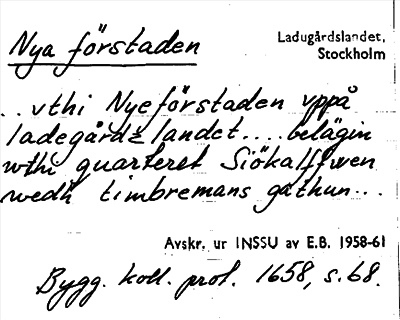 Nya förstaden
Ladugårdslandet,
Stockholm
...vthi Nyeförstaden vppå
ladegårdz landet.... belägin
wthi quarteret Siökalffwen
wedh timbremans gathun...
Avskr. ur INSSU av E.B. 1958-61
Bygg. koll. prot. 1658, s. 68.